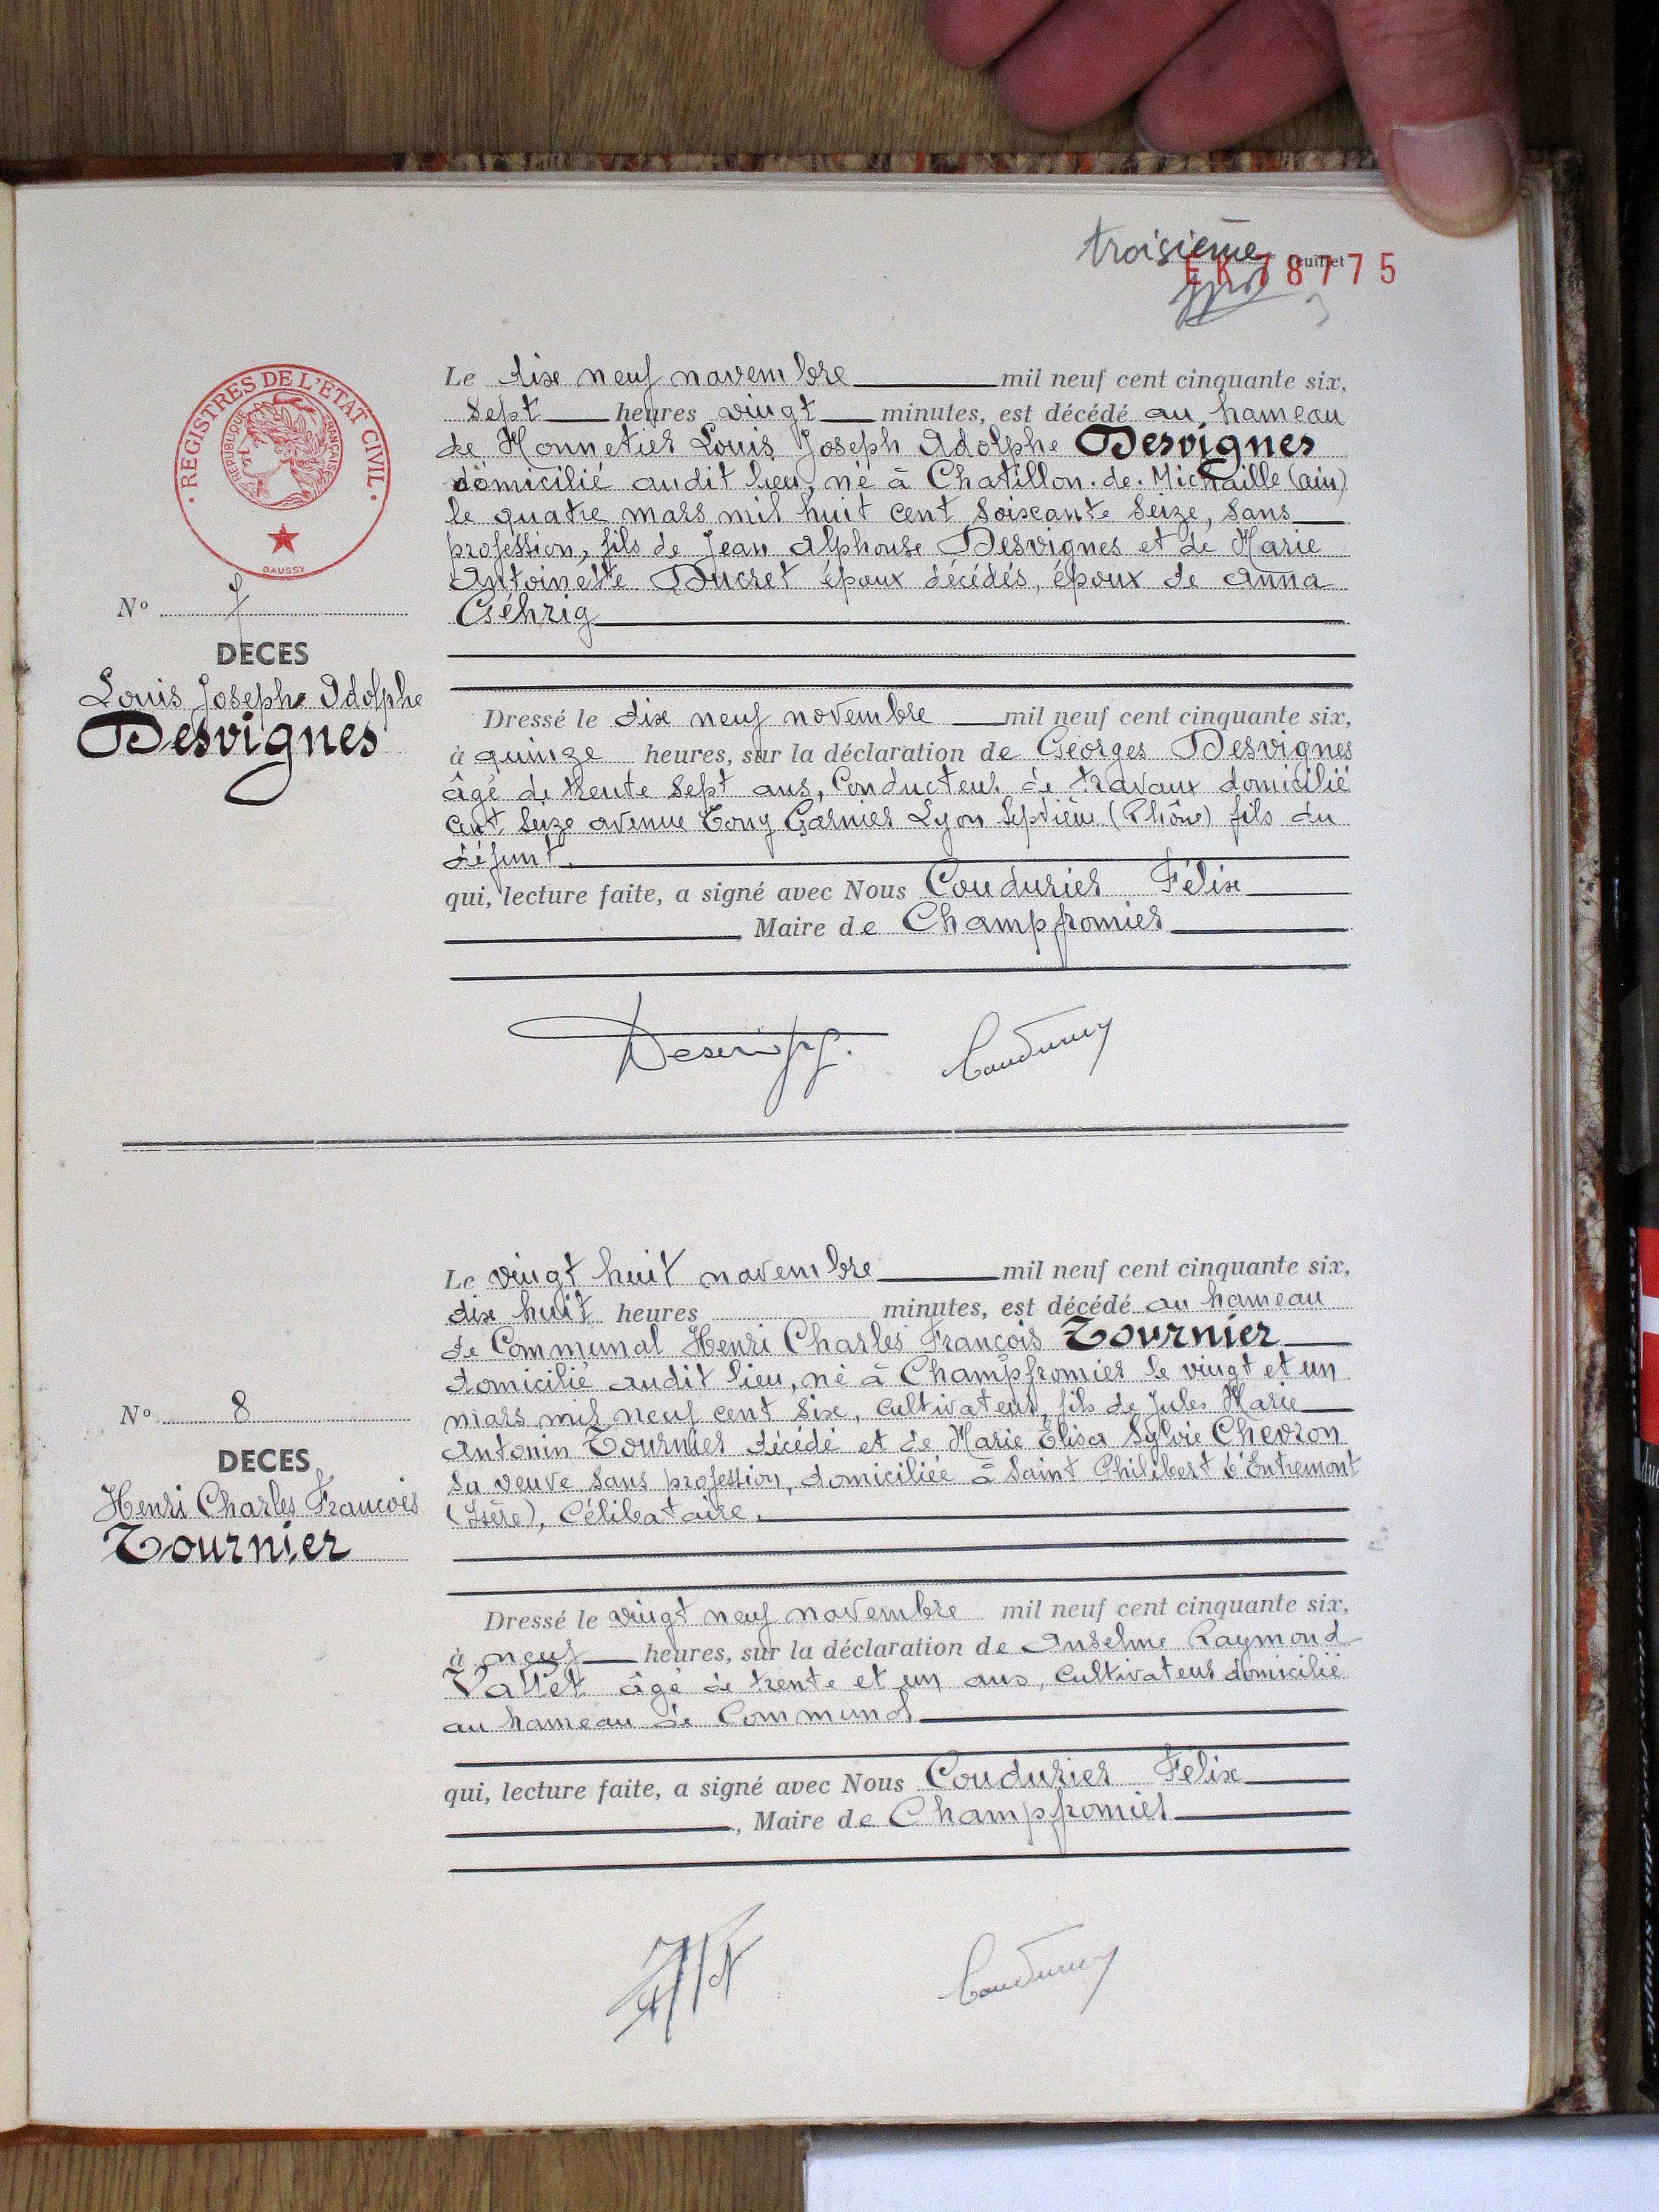 troisième feuillet
EK 78775
REGISTRES DE L'ETAT CIVIL
REPUBLIQUE FRANÇAISE
DAUSSY
Nº 7
DECES
Louis Joseph Adolphe
Desvignes
Le dix neuf novembre mil neuf cent cinquante six,
Sept heures vingt minutes, est décédé au hameau
de Monnetier Louis Joseph Adolphe Desvignes
domicilié audit lieu, né à Chatillon.de.Michaille (ain)
le quatre mars mil huit cent soixante seize, sans
profession, fils de Jean Alphonse Desvignes et de Marie
Antoinette Ducret époux décédés, époux de Anna
Géhrig
Dressé le dix neuf novembre mil neuf cent cinquante six,
à quinze heures, sur la déclaration de Georges Desvignes
âgé de trente sept ans, Conducteur de travaux domicilié
cent seize avenue Tony Garnier Lyon Septième (Rhône) fils du
défunt.
qui, lecture faite, a signé avec Nous Coudurier Félix
Maire de Champfromier
Coudurier
Nº 8
DECES
Henri Charles François
Tournier
Le vingt huit novembre mil neuf cent cinquante six,
dix huit heures minutes, est décédé au hameau
de Communal Henri Charles François Tournier
domicilié audit lieu, né à Champfromier le vingt et un
mars mil neuf cent six, cultivateur, fils de Jules Marie
Antonin Tournier décédé et de Marie Elisa Sylvie Chevron
sa veuve sans profession, domiciliée à Saint Philibert d'Entremont
(Isère), Célibataire.
Dressé le vingt neuf novembre mil neuf cent cinquante six,
à neuf heures, sur la déclaration de Anselme Raymond
Vallet âgé de trente et un ans, cultivateur domicilié
au hameau de Communal
qui, lecture faite, a signé avec Nous Coudurier Félix
, Maire de Champfromier
Coudurier